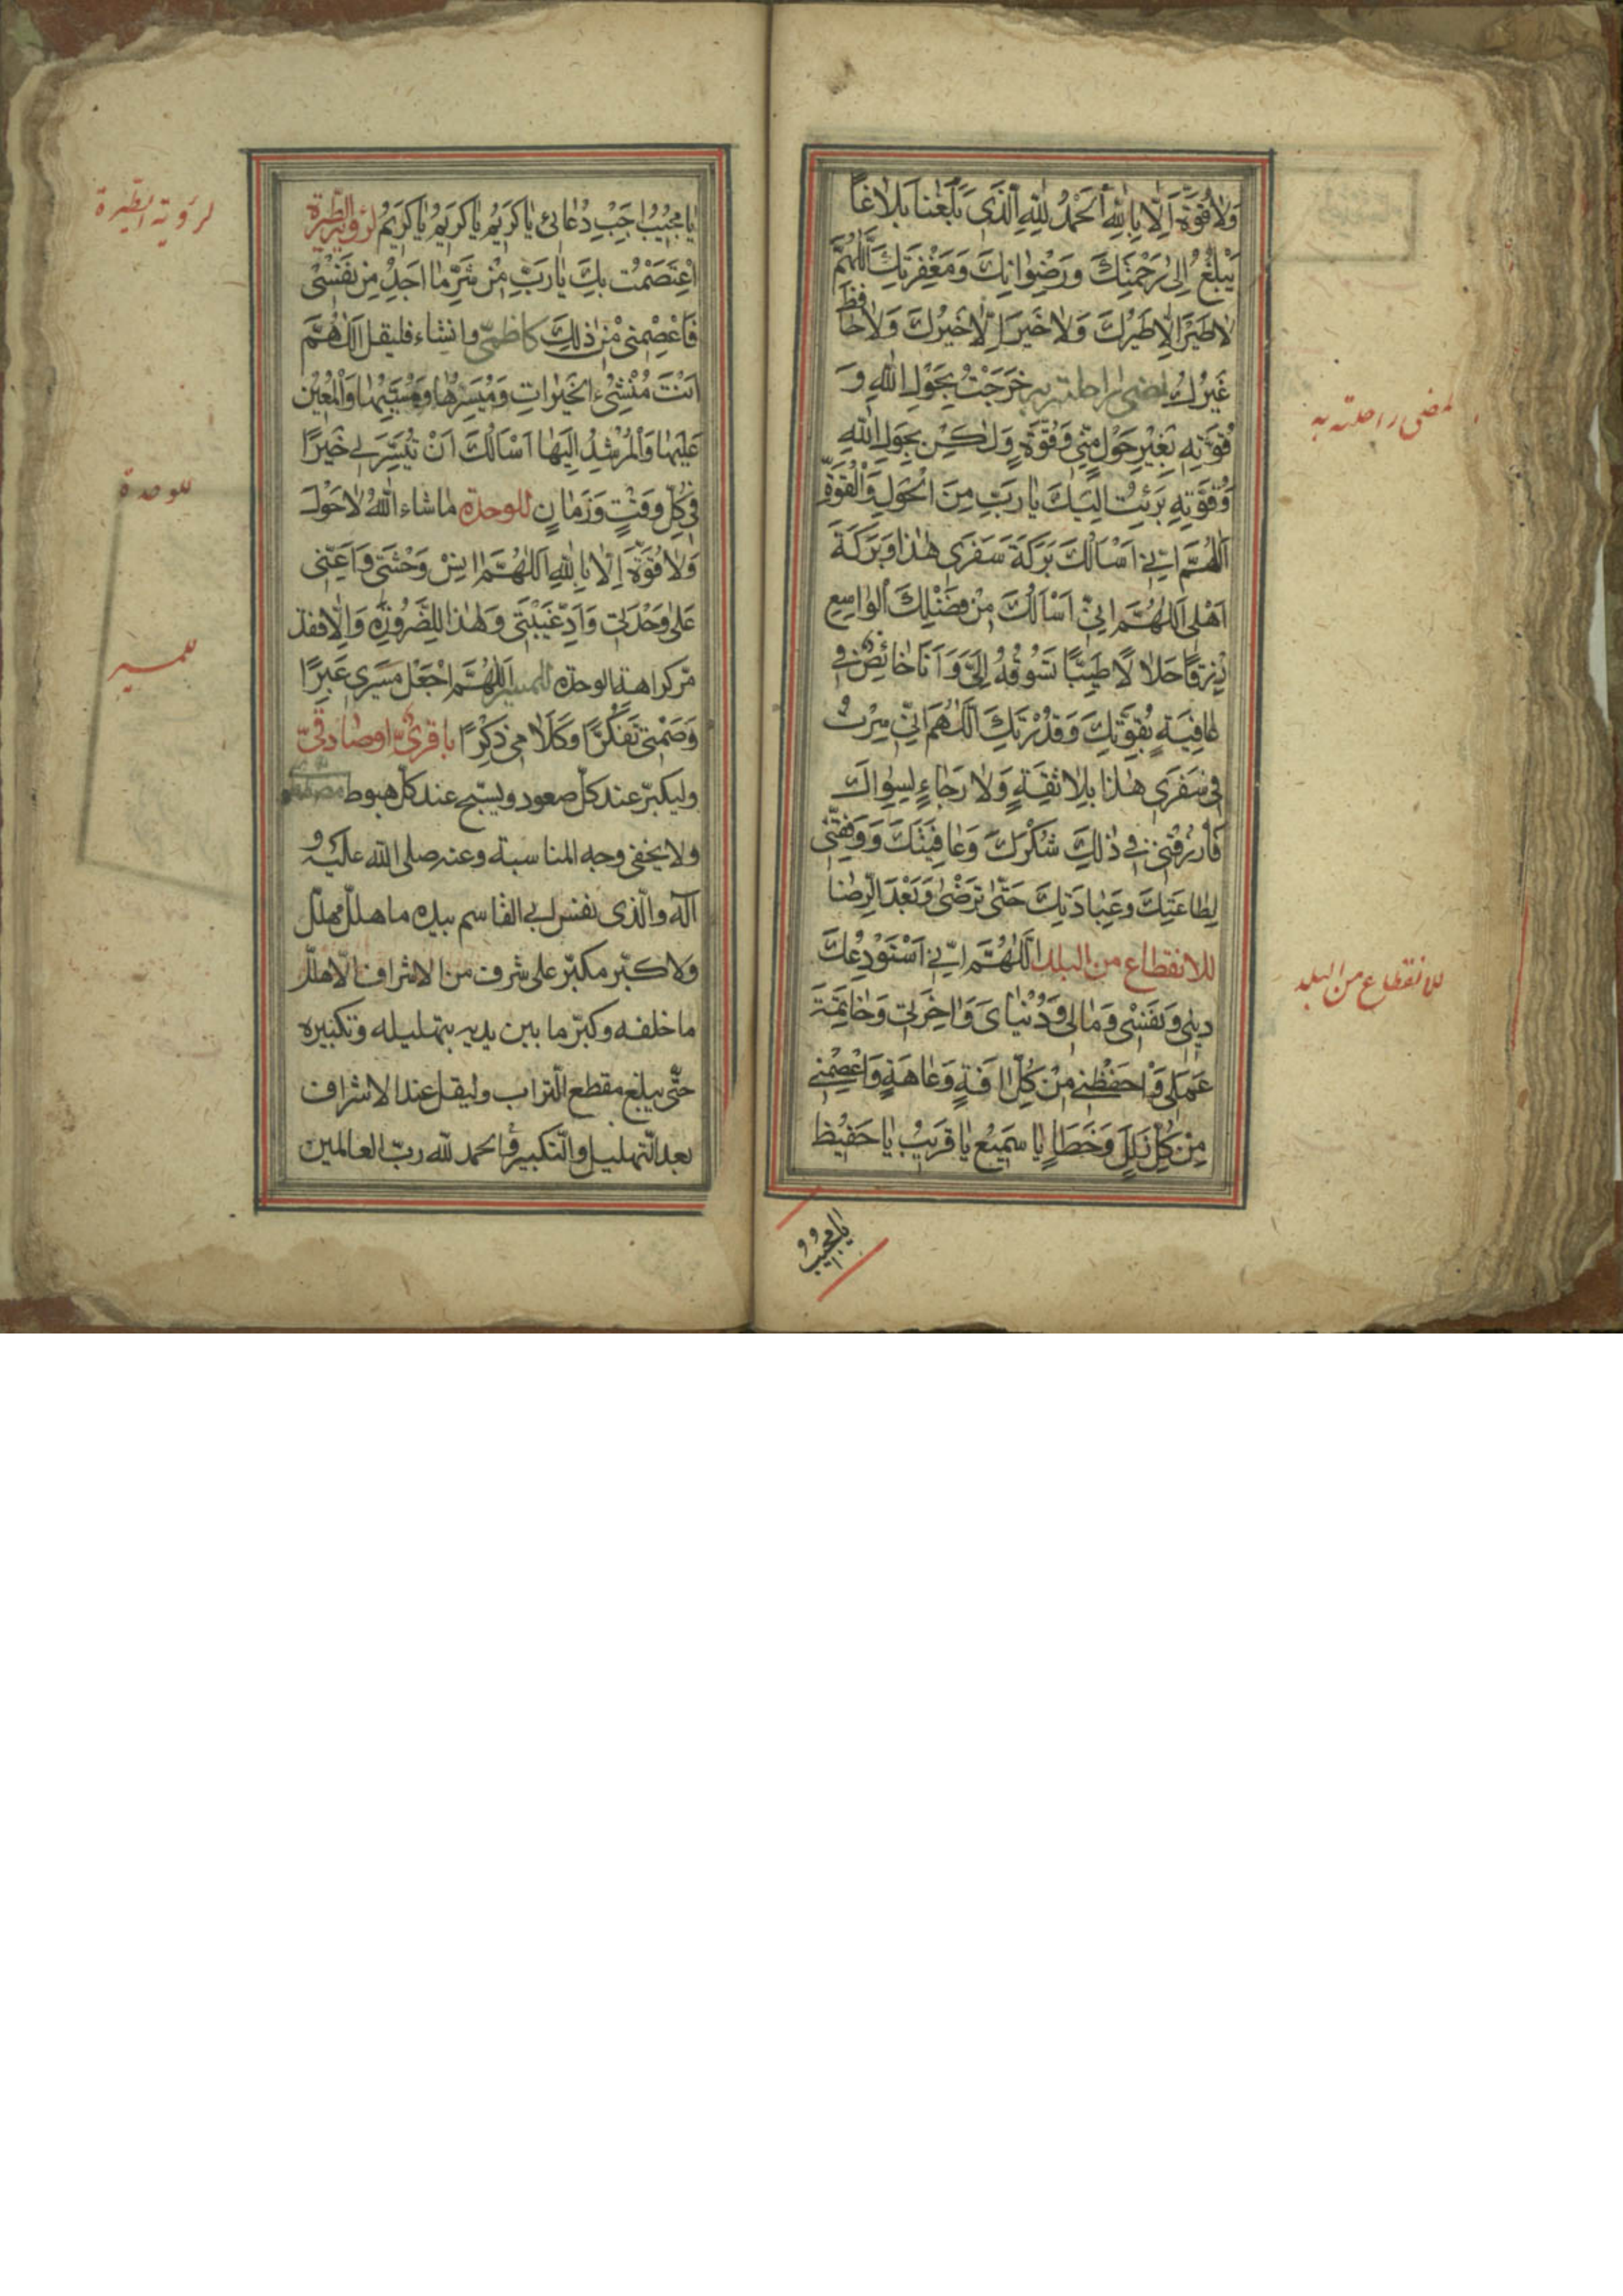 وَلَا قُوَّةَ اِلَّا بِاللّٰهِ اَلْحَمْدُ لِلّٰهِ الَّذِى بَلَّغَنَا بَلَاغًا
يَبْلُغُ اِلىٰ رَحْمَتِكَ وَرِضْوَانِكَ وَمَغْفِرَتِكَ اَللّٰهُمَّ
لَا طَيْرَ اِلَّا طَيْرُكَ وَلَا خَيْرَ اِلَّا خَيْرُكَ وَلَا حَافِظَ
غَيْرُكَ لمضىّ راحلته به خَرَجْتُ بِحَوْلِ اللّٰهِ وَ
قُوَّتِهِ بِغَيْرِ حَوْلٍ مِنِّى وَقُوَّةٍ وَلٰكِنْ بِحَوْلِ اللّٰهِ
وَقُوَّتِهِ بَرِئْتُ اِلَيْكَ يَا رَبِّ مِنَ الْحَوْلِ وَالْقُوَّةِ
اَللّٰهُمَّ اِنِّى اَسْاَلُكَ بَرَكَةَ سَفَرِى هٰذَا وَبَرَكَةَ
اَهْلِى اَللّٰهُمَّ اِنِّى اَسْاَلُكَ مِنْ فَضْلِكَ الْوَاسِعِ
رِزْقًا حَلَالًا طَيِّبًا تَسُوقُهُ اِلَىَّ وَاَنَا خَائِضٌ فِى
عَافِيَةٍ بِقُوَّتِكَ وَقُدْرَتِكَ اَللّٰهُمَّ اِنِّى سِرْتُ
فِى سَفَرِى هٰذَا بِلَا ثِقَةٍ وَلَا رَجَاءٍ لِسِوَاكَ
فَارْزُقْنِى فِى ذٰلِكَ شُكْرَكَ وَعَافِيَتَكَ وَوَفِّقْنِى
لِطَاعَتِكَ وَعِبَادَتِكَ حَتّٰى تَرْضٰى وَبَعْدَ الرِّضَا
للانقطاع من البلد اَللّٰهُمَّ اِنِّى اَسْتَوْدِعُكَ
دِينِى وَنَفْسِى وَمَالِى وَدُنْيَاىَ وَاٰخِرَتِى وَخَاتِمَةَ
عَمَلِى وَاحْفَظْنِى مِنْ كُلِّ اٰفَةٍ وَعَاهَةٍ وَاعْصِمْنِى
مِنْ كُلِّ زَلَلٍ وَخَطَاءٍ يَا سَمِيعُ يَا قَرِيبُ يَا حَفِيظُ
يا مجيب
لمضى راحلته به
للانقطاع من البلد
يَا مُجِيبُ اَجِبْ دُعَائِى يَا كَرِيمُ يَا كَرِيمُ يَا كَرِيمُ لرؤية الطيرة
اعْتَصَمْتُ بِكَ يَا رَبِّ مِنْ شَرِّ مَا اَجِدُ مِنْ نَفْسِى
فَاعْصِمْنِى مِنْ ذٰلِكَ كاظمىّ وان شاء فليقل اَللّٰهُمَّ
اَنْتَ مُنْشِئُ الْخَيْرَاتِ وَمُيَسِّرُهَا وَمُسَبِّبُهَا وَالْمُعِينُ
عَلَيْهَا وَالْمُرْشِدُ اِلَيْهَا اَسْاَلُكَ اَنْ تُيَسِّرَ لِى خَيْرًا
فِى كُلِّ وَقْتٍ وَزَمَانٍ للوحدة مَا شَاءَ اللّٰهُ لَا حَوْلَ
وَلَا قُوَّةَ اِلَّا بِاللّٰهِ اَللّٰهُمَّ اٰنِسْ وَحْشَتِى وَاَعِنِّى
عَلىٰ وَحْدَتِى وَاَدِّ غَيْبَتِى وَهٰذَا لِلضَّرُورَةِ وَاِلَّا فقد
مرّ كراهة الوحدة للمسير اَللّٰهُمَّ اجْعَلْ مَسِيرِى عِبَرًا
وَصَمْتِى تَفَكُّرًا وَكَلَامِى ذِكْرًا باقرىّ او صادقىّ
وليكبّر عند كلّ صعود ويسبّح عند كلّ هبوط
ولا يخفى وجه المناسبة وعنه صلى الله عليه و
آله والّذى نفس ابى القاسم بيده ما هلّل مهلّل
ولا كبّر مكبّر على شرف من الاشراف الّا هلّل
ما خلفه وكبّر ما بين يديه بتهليله وتكبيره
حتّى يبلغ مقطع التراب وليقل عند الاشراف
بعد التهليل والتكبير والحمد لله ربّ العالمين
لرؤية الطيرة
للوحدة
للمسير